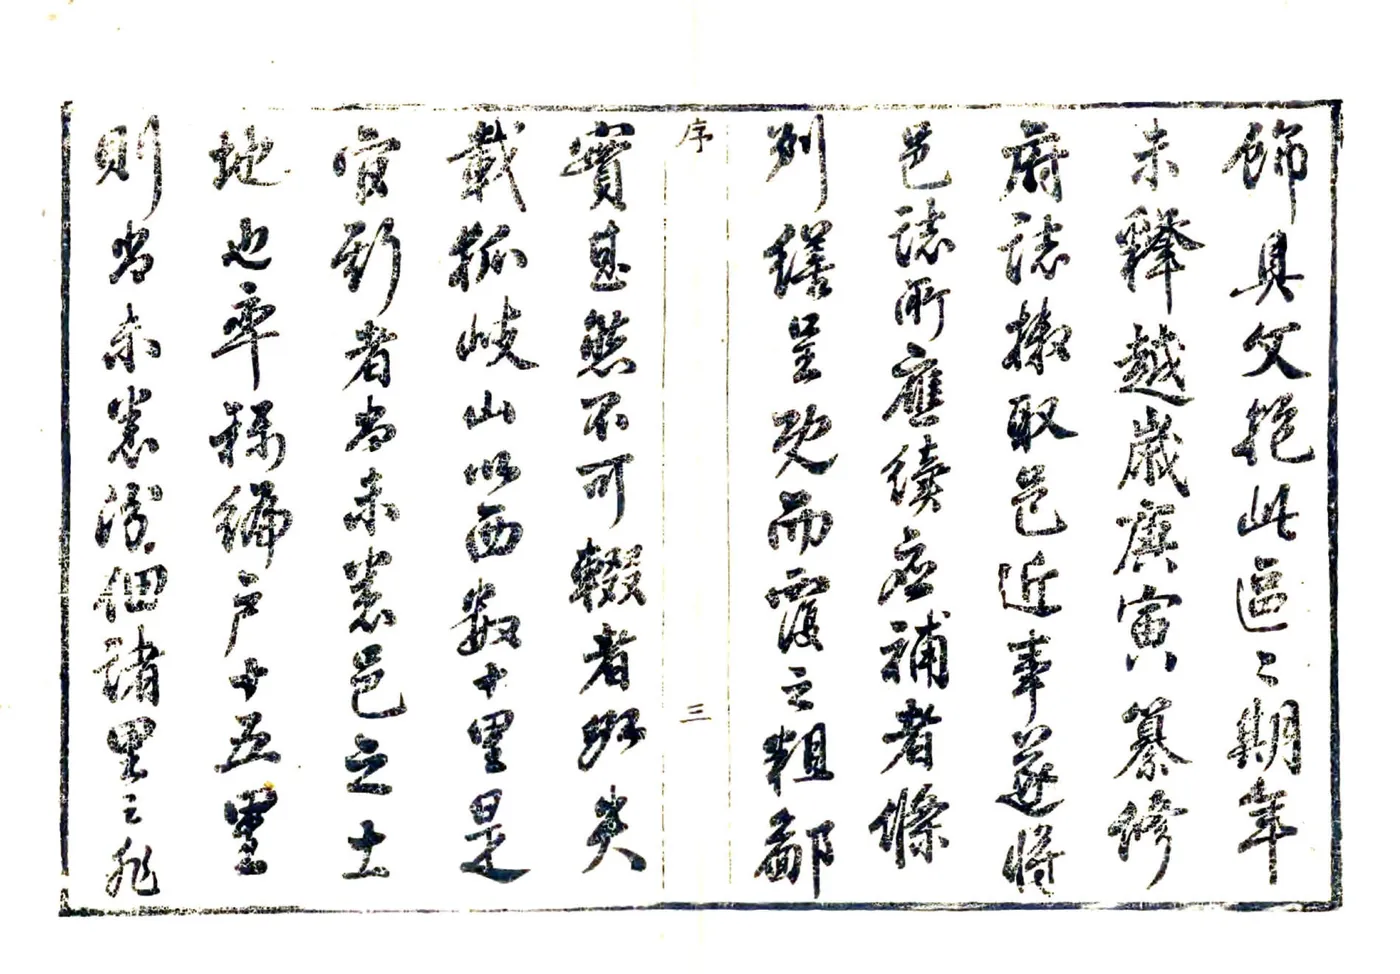 飾具文抱此區〻期年
未釋越歲庚寅纂修
府誌檄取邑近事遂將
邑誌所應續應補者條
列繕呈既而覆之粗鄙
序
三
實甚然不可輟者
載狐岐山以西數十里是
宦斯者尚未悉邑之土
地也率稱編戶十五里
則尚未悉佃諸里之非